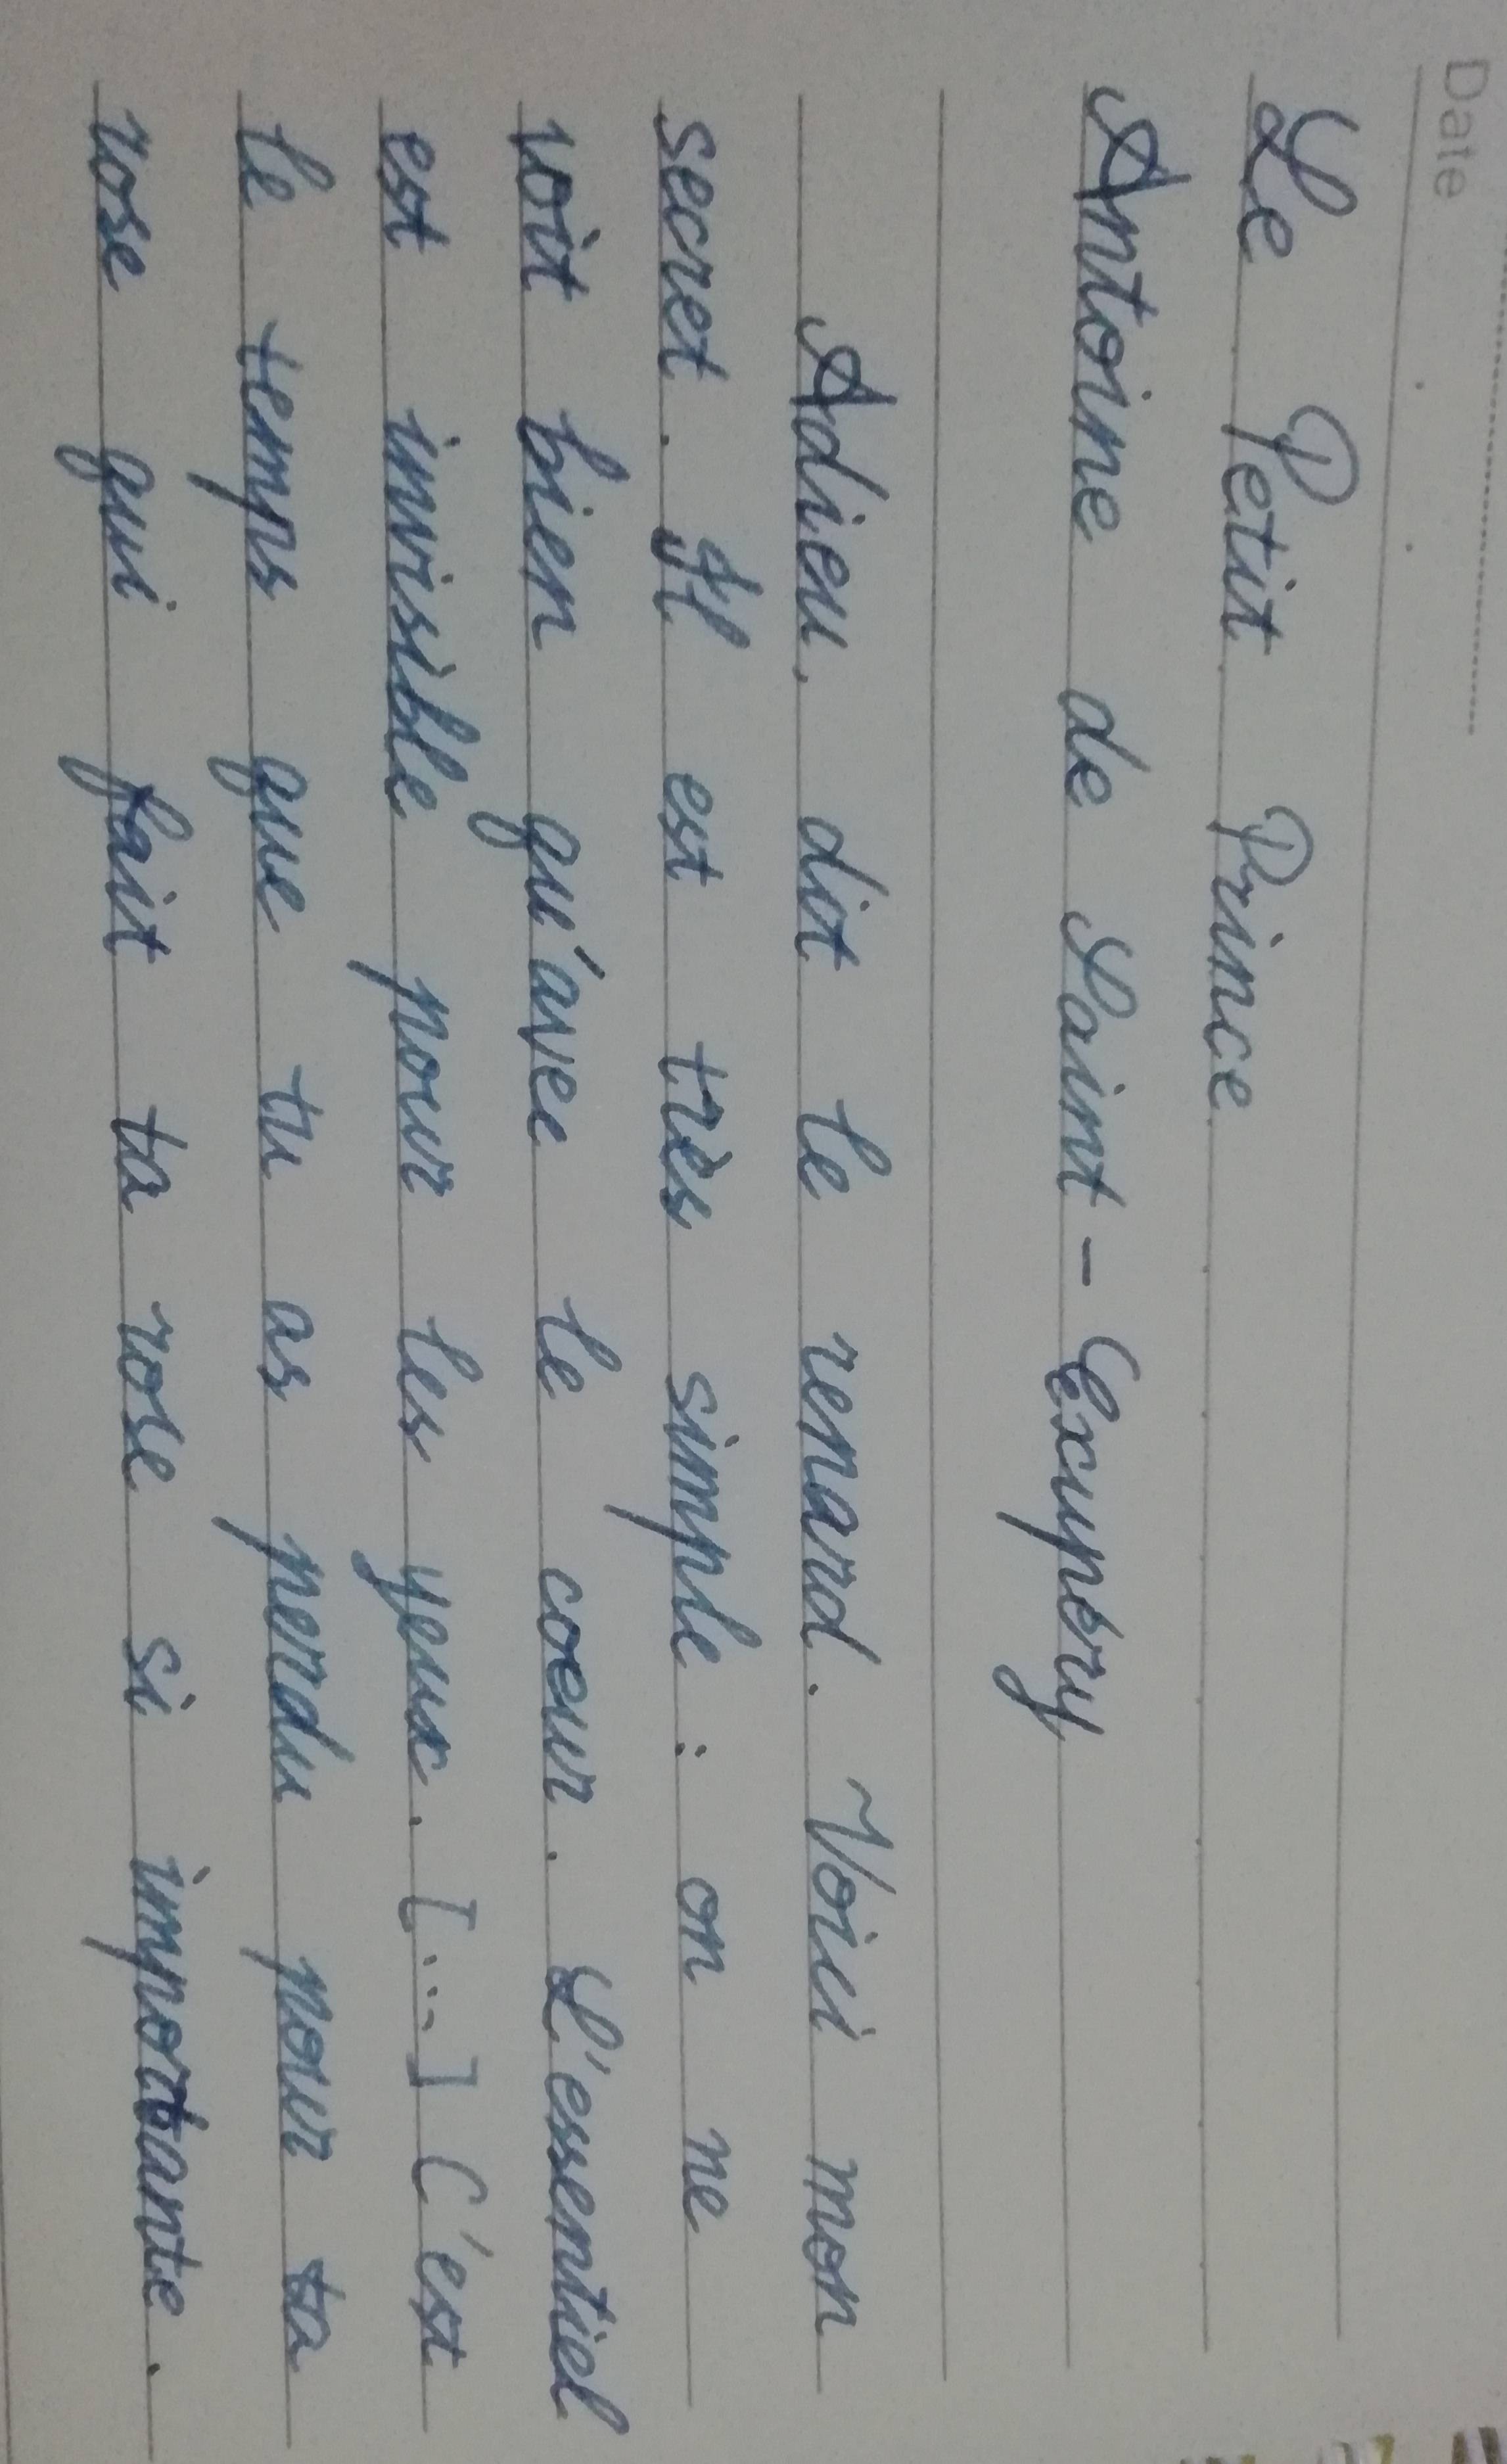 Date
Le Petit Prince
Antoine de Saint-Exupéry
Adieu, dit le renard. Voici mon
secret. Il est très simple : on ne
voit bien qu'avec le coeur. L'essentiel
est invisible pour les yeux. [...] C'est
le temps que tu as perdu pour ta
rose qui fait ta rose si importante.